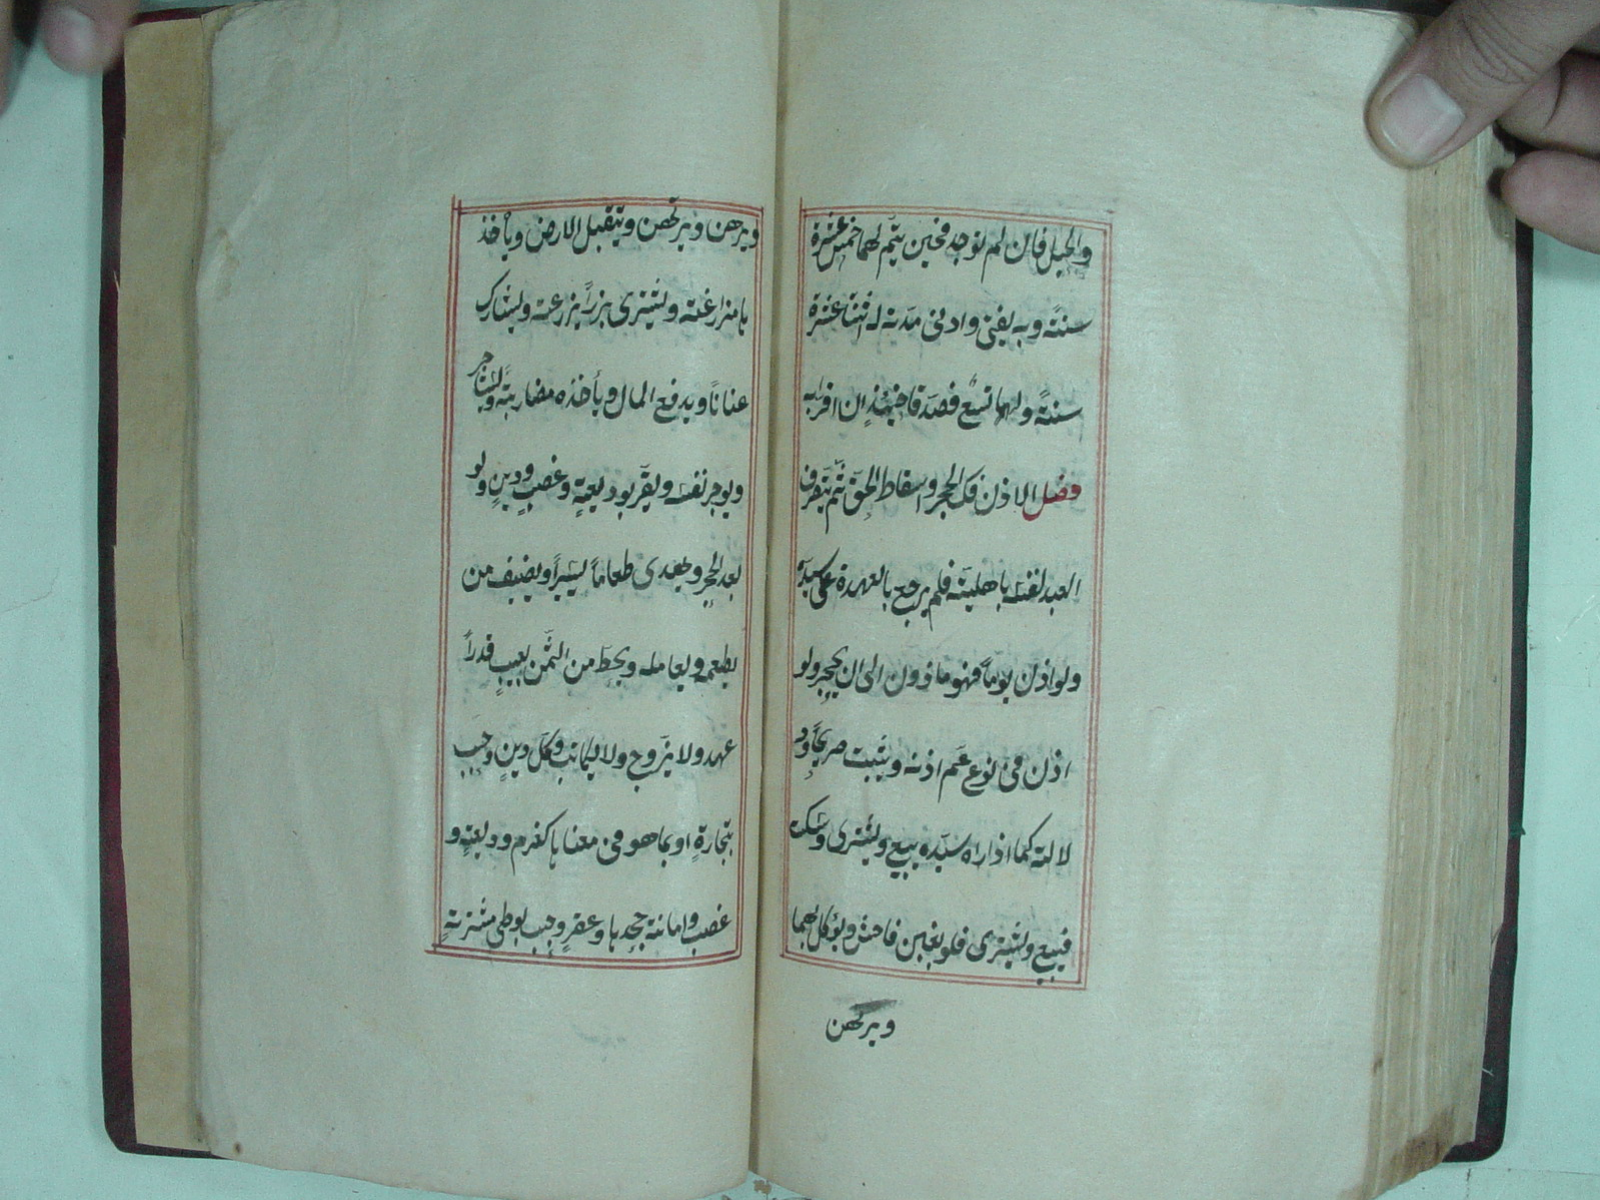 والحبل فان لم توجد فحين يتم لهما خمس عشرة
سنة وبه يفتى وادنى مدته له اثنتا عشرة
سنةً ولهما تسع فصدقا حينئذٍ ان اقرا به
فصل الاذن فك الحجر واسقاط الحق ثم يتصرف
العبد لنفسه باهليته فلم يرجع بالعهدة على سيده
ولو اذن يوماً فهو ماذون الى ان يحجر ولو
اذن فى نوع عم اذنه ويثبت صريحاً ود
لالة كما اذا راه سيده يبيع ويشترى وسكت
فيبيع ويشترى فلو بغبن فاحش ويوكل بهما
ويرتهن
ويرهن ويرتهن ويتقبل الارض وياخذ
ها مزارعة ويشترى بزراً يزرعه ويشارك
عناناً ويدفع المال وياخذه مضاربة ويستاجر
ويوجر نفسه ويقر بوديعةٍ وغصبٍ ودينٍ ولو
بعد الحجر ويهدى طعاماً يسيراً ويضيف من
يطعمه ويعامله ويحط من الثمن بعيبٍ قدراً
عهد ولا يزوج ولا يكاتب وكل دينٍ وجب
بتجارةٍ او بما هو فى معناها كغرم وديعةٍ و
غصب وامانة جحدها وعقرٍ وجب بوطى مشترية